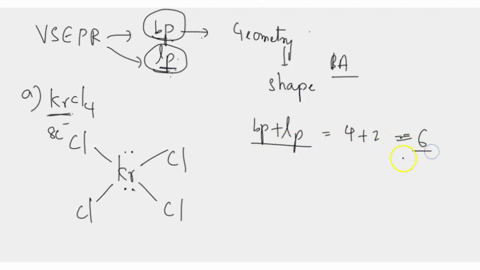 VSEPR → bp → Geometry
lp
shape BA
a) KrCl4
8e-
bp+lp = 4+2 = 6
Cl Cl
Kr
Cl Cl